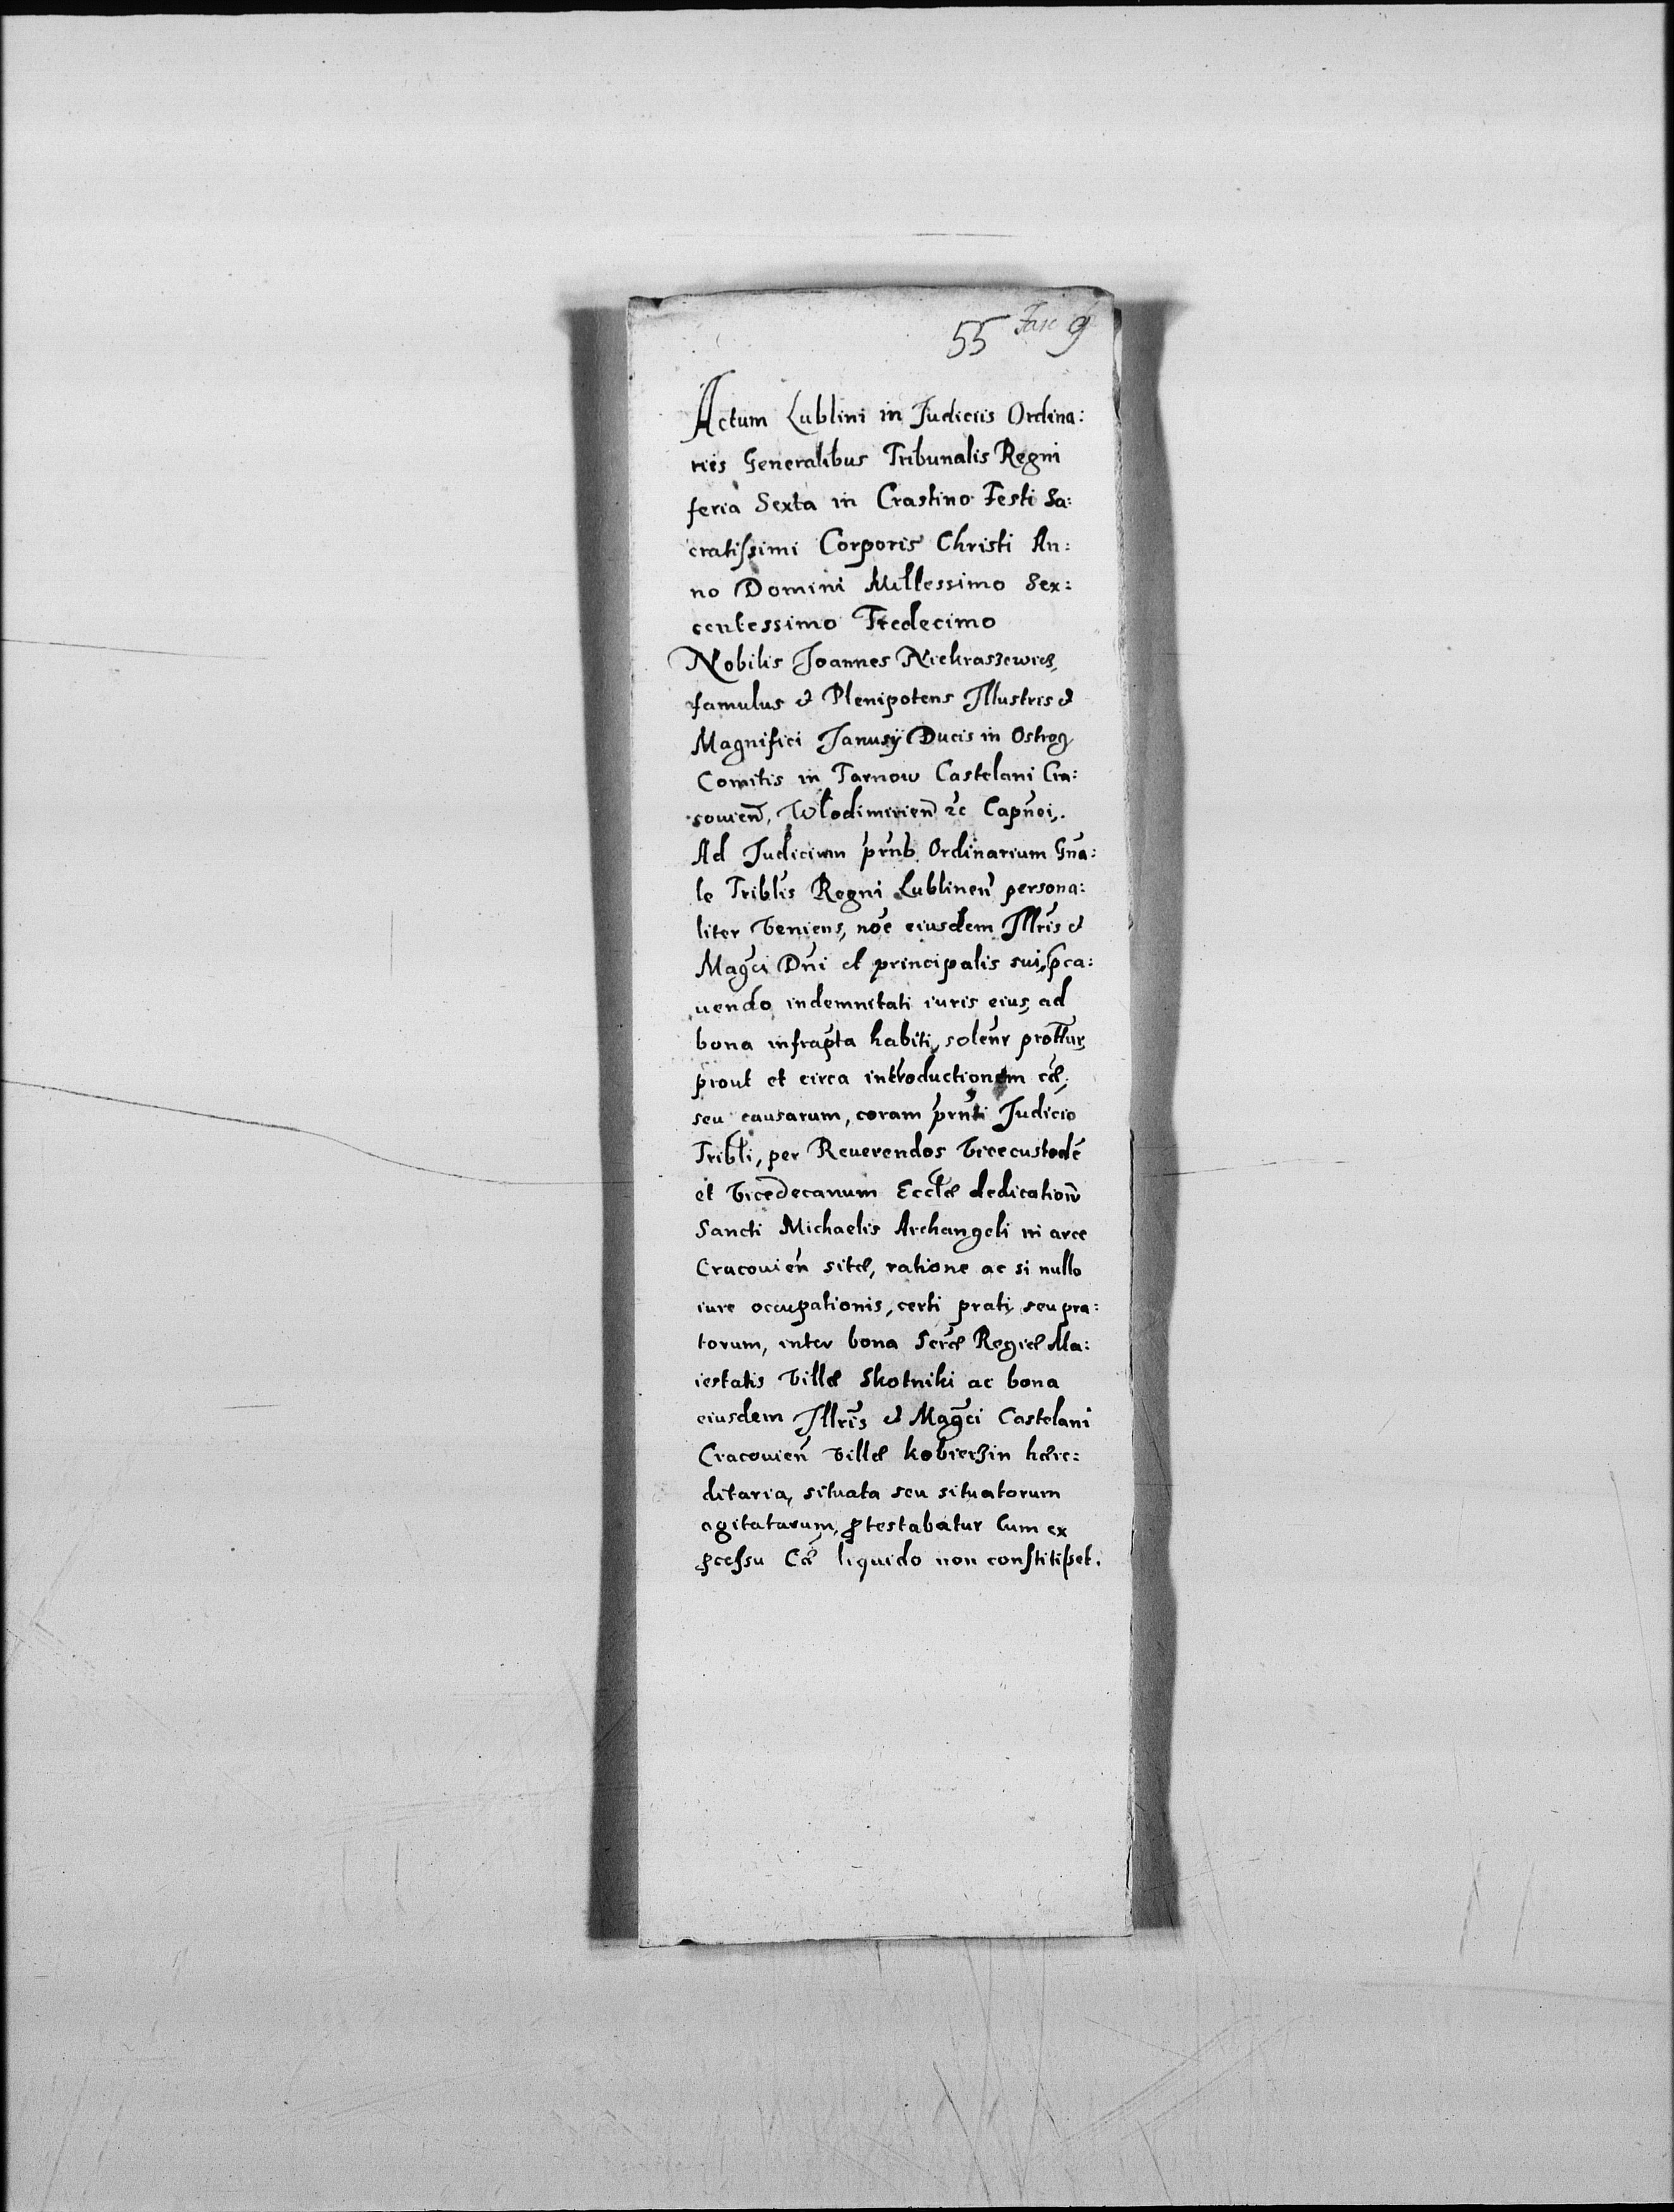 55 Fasc 9
Actum Lublini in Judiciis Ordina:
riis Generalibus Tribunalis Regni
feria Sexta in Crastino Festi Sa:
cratissimi Corporis Christi An:
no Domini Millessimo Sex:
centessimo Tredecimo
Nobilis Joannes Niekraszewicz,
famulus & Plenipotens Illustris &
Magnifici Janusÿ Ducis in Ostrog
Comitis in Tarnow Castelani Cra:
couien̄, Wlodimirien̄ &c Capn̄ei.
Ad Judicium prn̄s Ordinarium Gn̄a:
le Triblis Regni Lublinen̄ persona:
liter veniens, noē eiusdem Illris &
Magci Dn̄i et principalis sui, prca:
uendo indemnitati iuris eius, ad
bona infrapta habiti, solenr prottur,
prout et circa introductionem cæ,
seu causarum, coram prn̄ti Judicio
Tribli, per Reuerendos Vicecustodē
et Vicedecanum Ecclæ dedication̄
Sancti Michaelis Archangeli in arce
Cracouien̄ sitæ, ratione ac si nullo
iure occupationis, certi prati, seu pra:
torum, inter bona Scræ Regiæ Ma:
iestatis villæ Skotniki ac bona
eiusdem Illris & Magci Castelani
Cracouien̄ villæ Kobierzin hære:
ditaria, situata seu situatorum
agitatarum, ꝓtestabatur Cum ex
ꝓcessu Cæ liquido non constitisset.